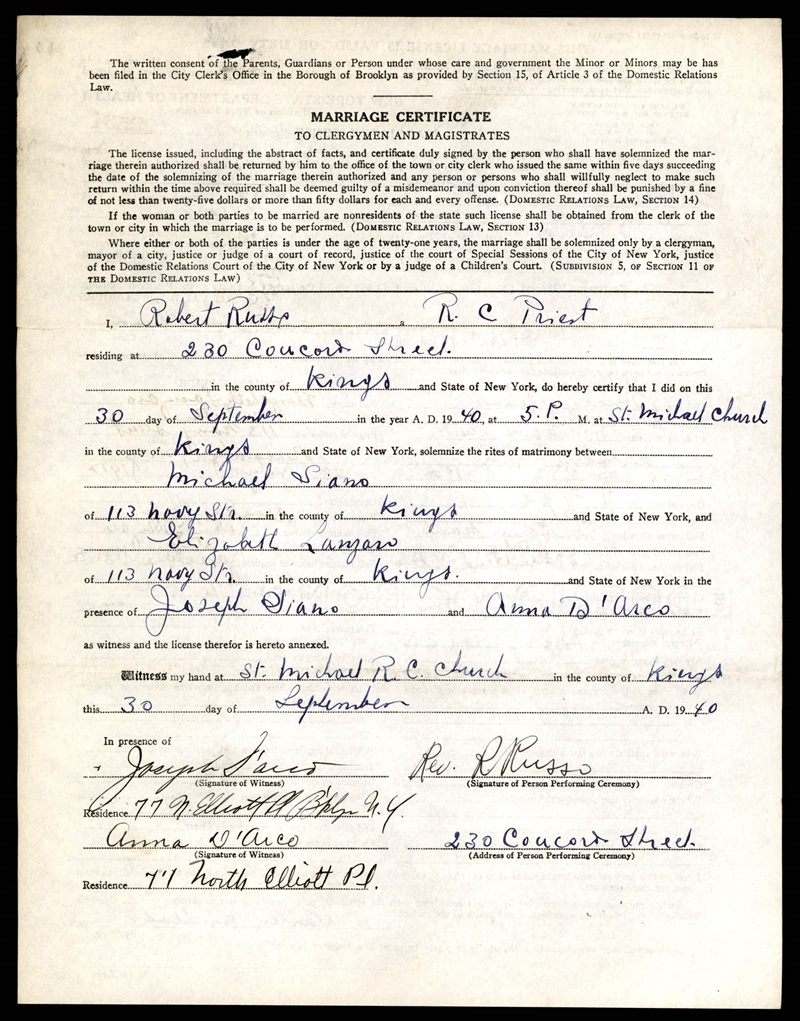 The written consent of the Parents, Guardians or Person under whose care and government the Minor or Minors may be has
been filed in the City Clerk's Office in the Borough of Brooklyn as provided by Section 15, of Article 3 of the Domestic Relations
Law.
MARRIAGE CERTIFICATE
TO CLERGYMEN AND MAGISTRATES
The license issued, including the abstract of facts, and certificate duly signed by the person who shall have solemnized the mar-
riage therein authorized shall be returned by him to the office of the town or city clerk who issued the same within five days succeeding
the date of the solemnizing of the marriage therein authorized and any person or persons who shall willfully neglect to make such
return within the time above required shall be deemed guilty of a misdemeanor and upon conviction thereof shall be punished by a fine
of not less than twenty-five dollars or more than fifty dollars for each and every offense. (DOMESTIC RELATIONS LAW, SECTION 14)
If the woman or both parties to be married are nonresidents of the state such license shall be obtained from the clerk of the
town or city in which the marriage is to be performed. (DOMESTIC RELATIONS LAW, SECTION 13)
Where either or both of the parties is under the age of twenty-one years, the marriage shall be solemnized only by a clergyman,
mayor of a city, justice or judge of a court of record, justice of the court of Special Sessions of the City of New York, justice
of the Domestic Relations Court of the City of New York or by a judge of a Children's Court. (SUBDIVISION 5, OF SECTION 11 OF
THE DOMESTIC RELATIONS LAW)
I, Robert Russo a R. C Priest
residing at 230 Concord Street.
in the county of Kings and State of New York, do hereby certify that I did on this
30 day of September in the year A. D. 19 40, at 5. P. M. at St. Michael Church
in the county of Kings and State of New York, solemnize the rites of matrimony between
Michael Siano
of 113 Navy Str. in the county of Kings and State of New York, and
Elizabeth Lanzaro
of 113 Navy Str. in the county of Kings. and State of New York in the
presence of Joseph Siano and Anna D'Arco
as witness and the license therefor is hereto annexed.
Witness my hand at St. Michael R. C. Church in the county of Kings
this 30 day of September A. D. 19 40
In presence of
Joseph Rev. R Russo
(Signature of Witness) (Signature of Person Performing Ceremony)
Residence 77 N. Elliott Pl B'klyn N.Y.
Anna D'Arco 230 Concord Street
(Signature of Witness) (Address of Person Performing Ceremony)
Residence 77 North Elliott Pl.